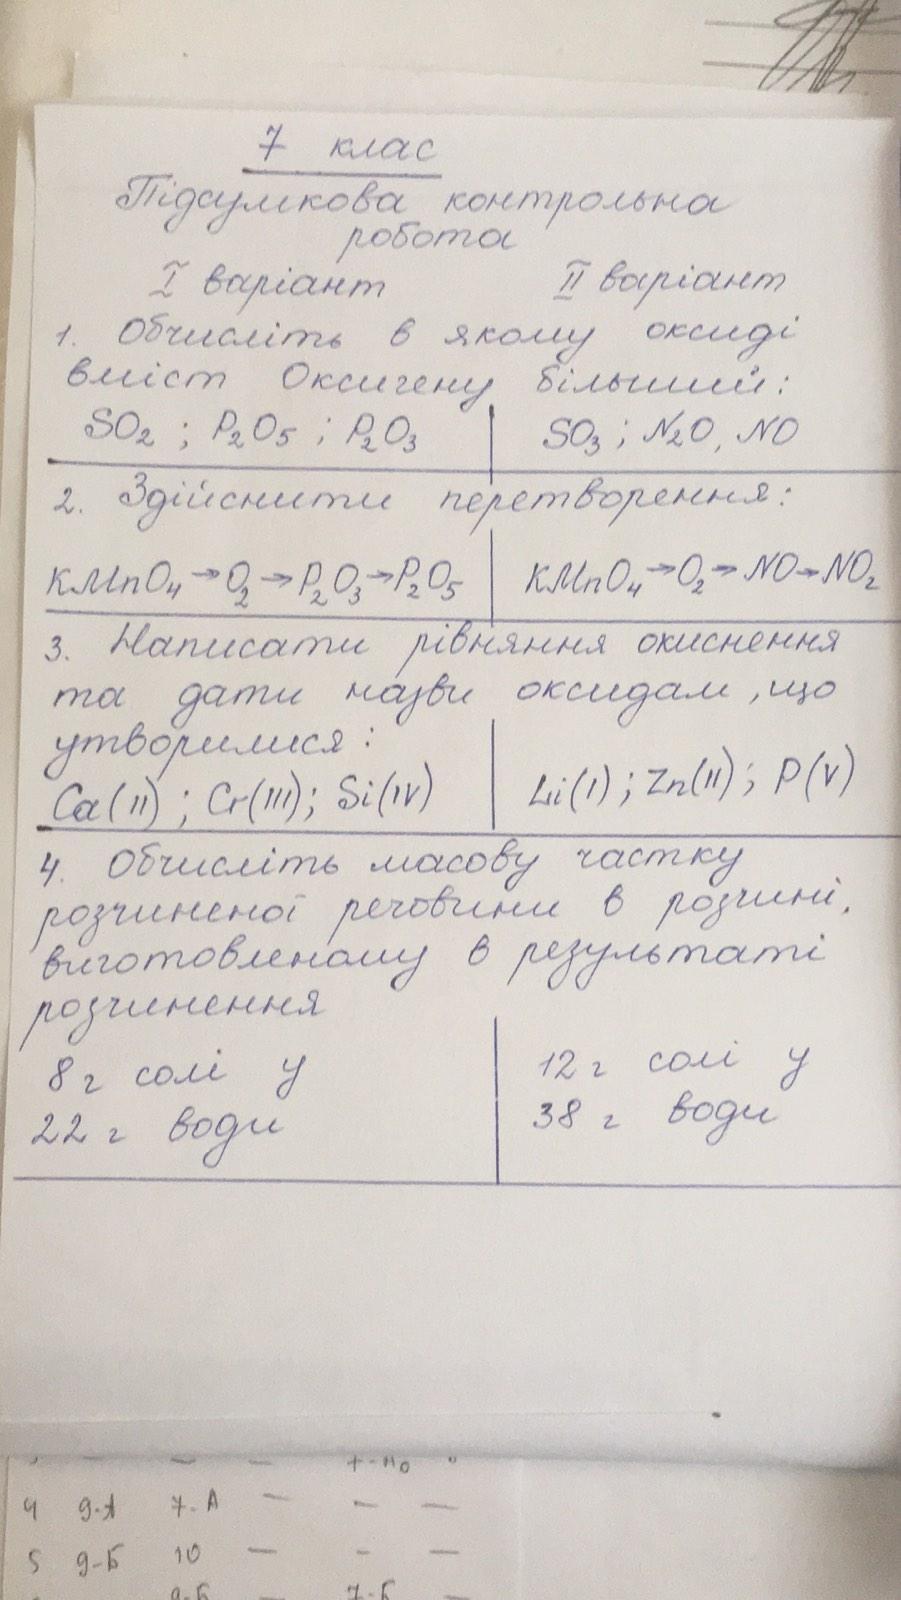 7 клас
Підсумкова контрольна
робота
I варіант II варіант
1. Обчисліть в якому оксиді
вміст Оксигену більший:
SO2 ; P2O5 ; P2O3 SO3 ; N2O, NO
2. Здійснити перетворення:
KMnO4→O2→P2O3→P2O5 KMnO4→O2→NO→NO2
3. Написати рівняння окиснення
та дати назви оксидам, що
утворилися:
Ca(II) ; Cr(III); Si(IV) Li(I) ; Zn(II) ; P(V)
4. Обчисліть масову частку
розчиненої речовини в розчині,
виготовленому в результаті
розчинення
8 г солі у 12 г солі у
22 г води 38 г води
4 9-А 7-А — — —
5 9-Б 10 — - —
9-Б — 7-Б —